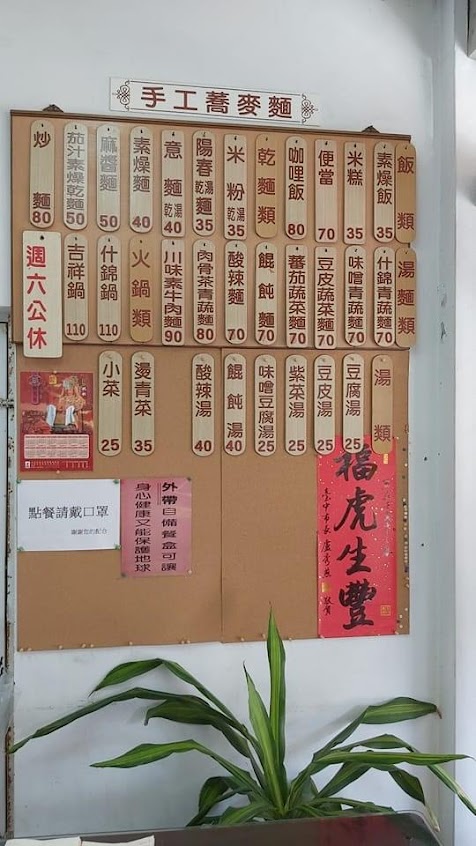 手工蕎麥麵
飯類
素燥飯 35
米糕 35
便當 70
咖哩飯 80
乾麵類
米粉 乾湯 35
陽春麵 乾湯 35
意麵 乾湯 40
素燥麵 40
麻醬麵 50
茄汁素燥乾麵 50
炒麵 80
湯麵類
什錦青蔬麵 70
味噌青蔬麵 70
豆皮蔬菜麵 70
蕃茄蔬菜麵 70
餛飩麵 70
酸辣麵 70
肉骨茶青蔬麵 80
川味素牛肉麵 90
火鍋類
什錦鍋 110
吉祥鍋 110
週六公休
湯類
豆腐湯 25
豆皮湯 25
紫菜湯 25
味噌豆腐湯 25
餛飩湯 40
酸辣湯 40
燙青菜 35
小菜 25
點餐請戴口罩
謝謝您的配合
外帶自備餐盒可讓
身心健康又能保護地球
福虎生豐
臺中市長 盧秀燕 敬賀